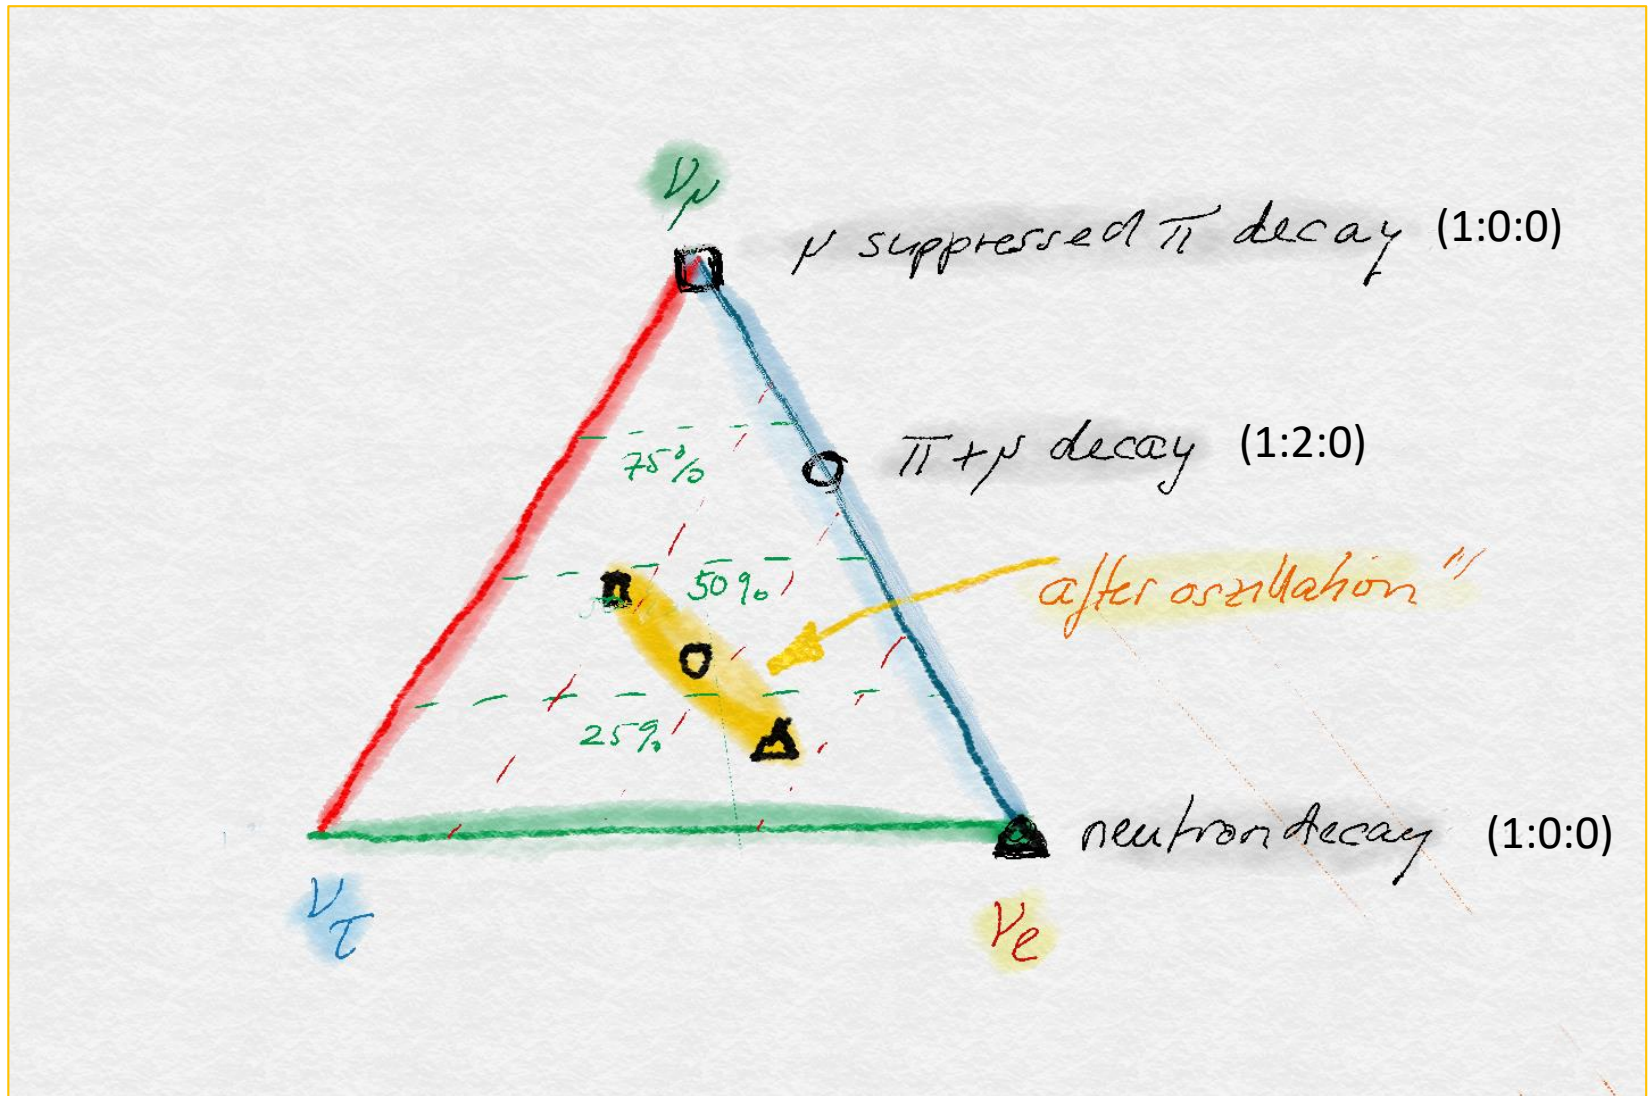 νμ
μ suppressed π decay (1:0:0)
75%
π+μ decay (1:2:0)
50%
after oszillation"
25%
neutron decay (1:0:0)
ντ
νe